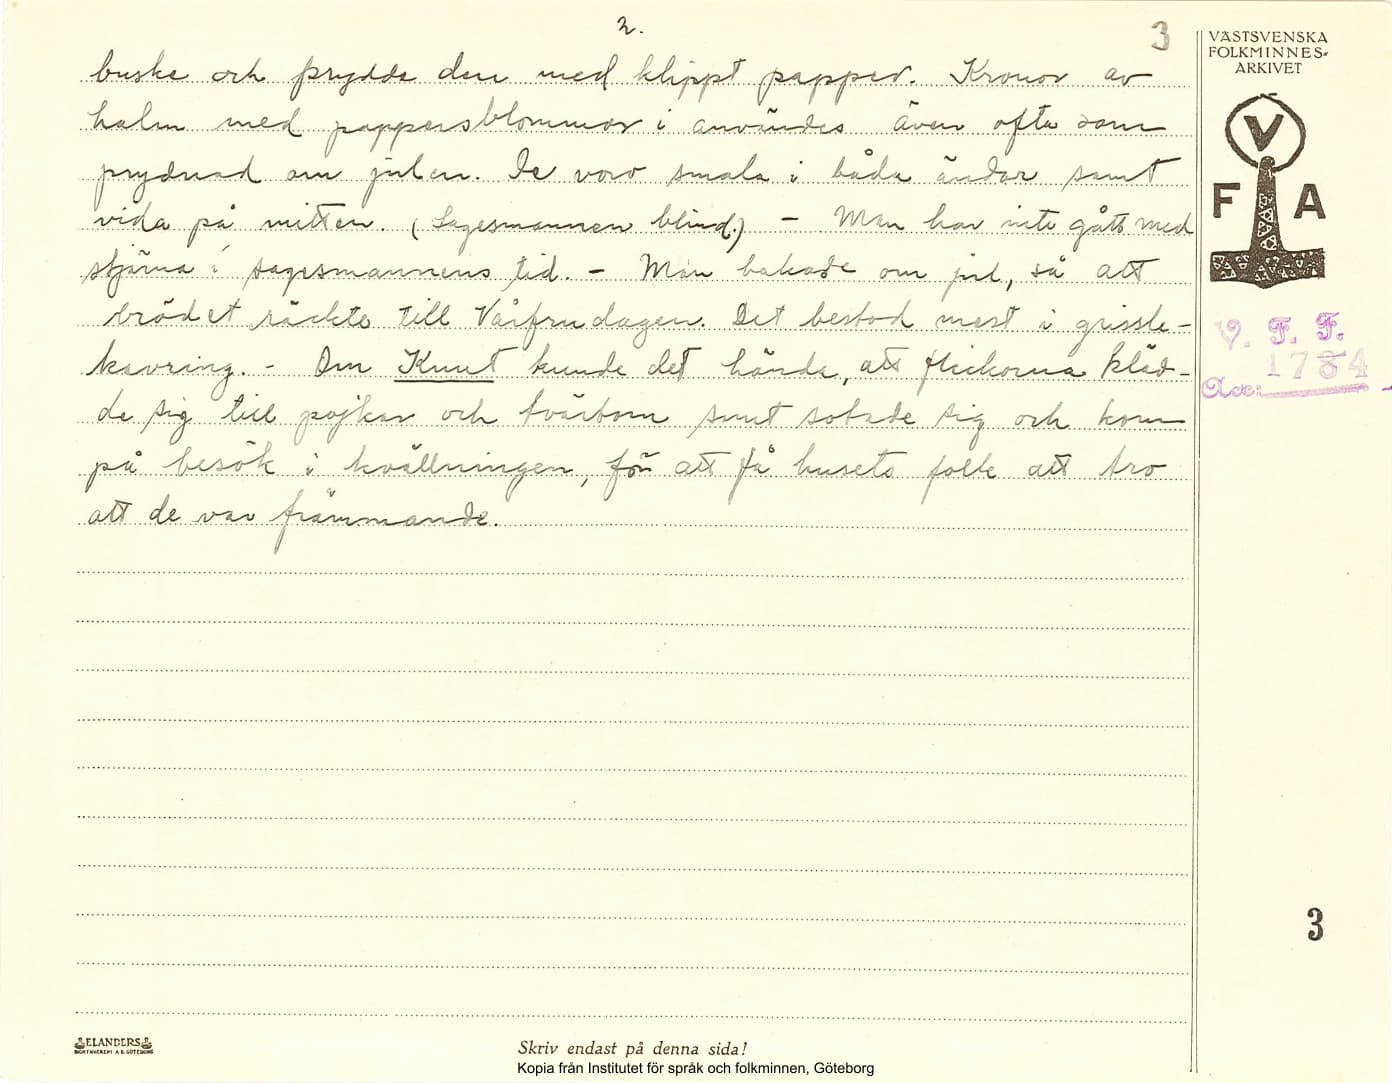 2.
3
buske och prydde den med klippt papper. Kronor av
halm med pappersblommor i användes även ofta som
prydnad om julen. De voro smala i båda ändar samt
vida på mitten. (Sagesmannen blind.) - Man har inte gått med
stjärna i sagesmannens tid. - Man bakade om jul, så att
brödet räckte till Vårfrudagen. Det bestod mest i grissle-
kavring. - Om Knut kunde det hända, att flickorna kläd-
de sig till pojkar och tvärtom samt sotade sig och kom
på besök i kvällningen, för att få husets folk att tro
att de var främmande.
VÄSTSVENSKA
FOLKMINNES-
ARKIVET
V
F A
V. F. F.
1784
Acc:
3
ELANDERS
BOKTRYCKERI A.B. GÖTEBORG
Skriv endast på denna sida!
Kopia från Institutet för språk och folkminnen, Göteborg